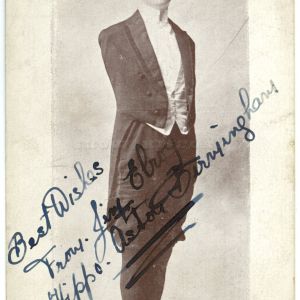 Best Wishes
From. Jim Elroy
Hippo. Aston Birmingham